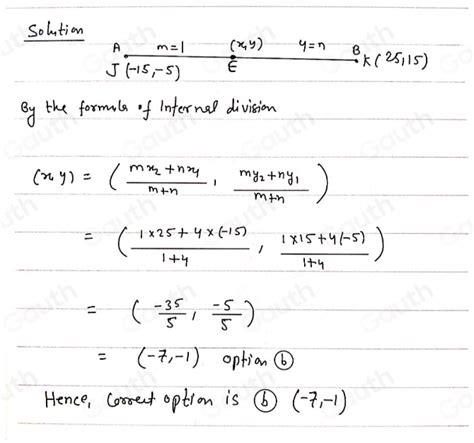 Solution
A m=1 (x,y) 4=n B
J (-15,-5) E K(25,15)
By the formula of Internal division
(x y) = ( mx₂+nx₁ / m+n , my₂+ny₁ / m+n )
= ( 1×25+4×(-15) / 1+4 , 1×15+4(-5) / 1+4 )
= ( -35/5 , -5/5 )
= (-7,-1) option ⓑ
Hence, Correct option is ⓑ (-7,-1)
Gauth